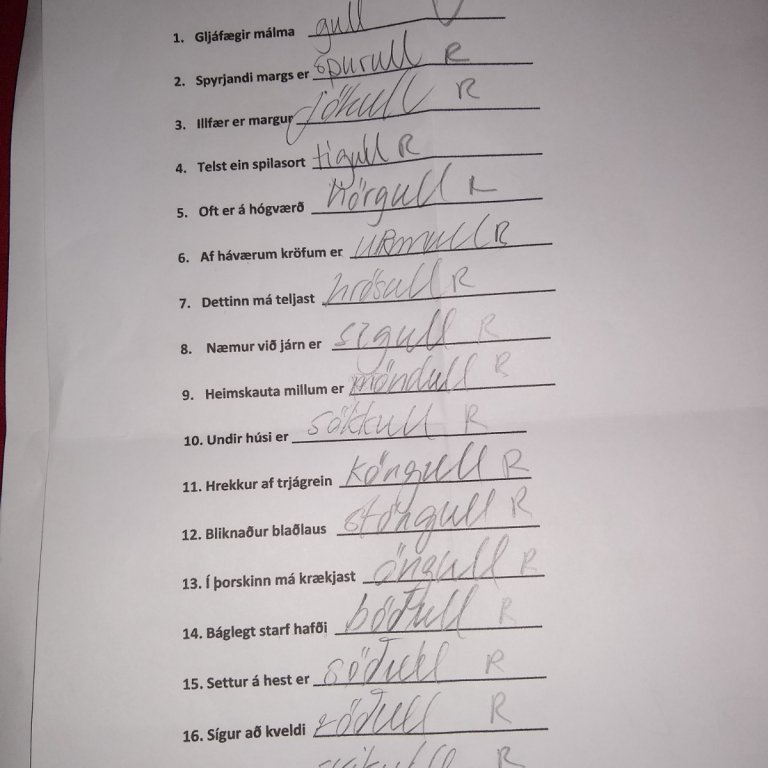 1. Gljáfægir málma gull V
2. Spyrjandi margs er spurull R
3. Illfær er margur jökull R
4. Telst ein spilasort tigull R
5. Oft er á hógværð hörgull R
6. Af háværum kröfum er URmull R
7. Dettinn má teljast hrösull R
8. Næmur við járn er segull R
9. Heimskauta millum er möndull R
10. Undir húsi er sökkull R
11. Hrekkur af trjágrein köngull R
12. Bliknaður blaðlaus stöngull R
13. Í þorskinn má krækjast öngull R
14. Báglegt starf hafði böðull R
15. Settur á hest er söðull R
16. Sígur að kveldi röðull R
R